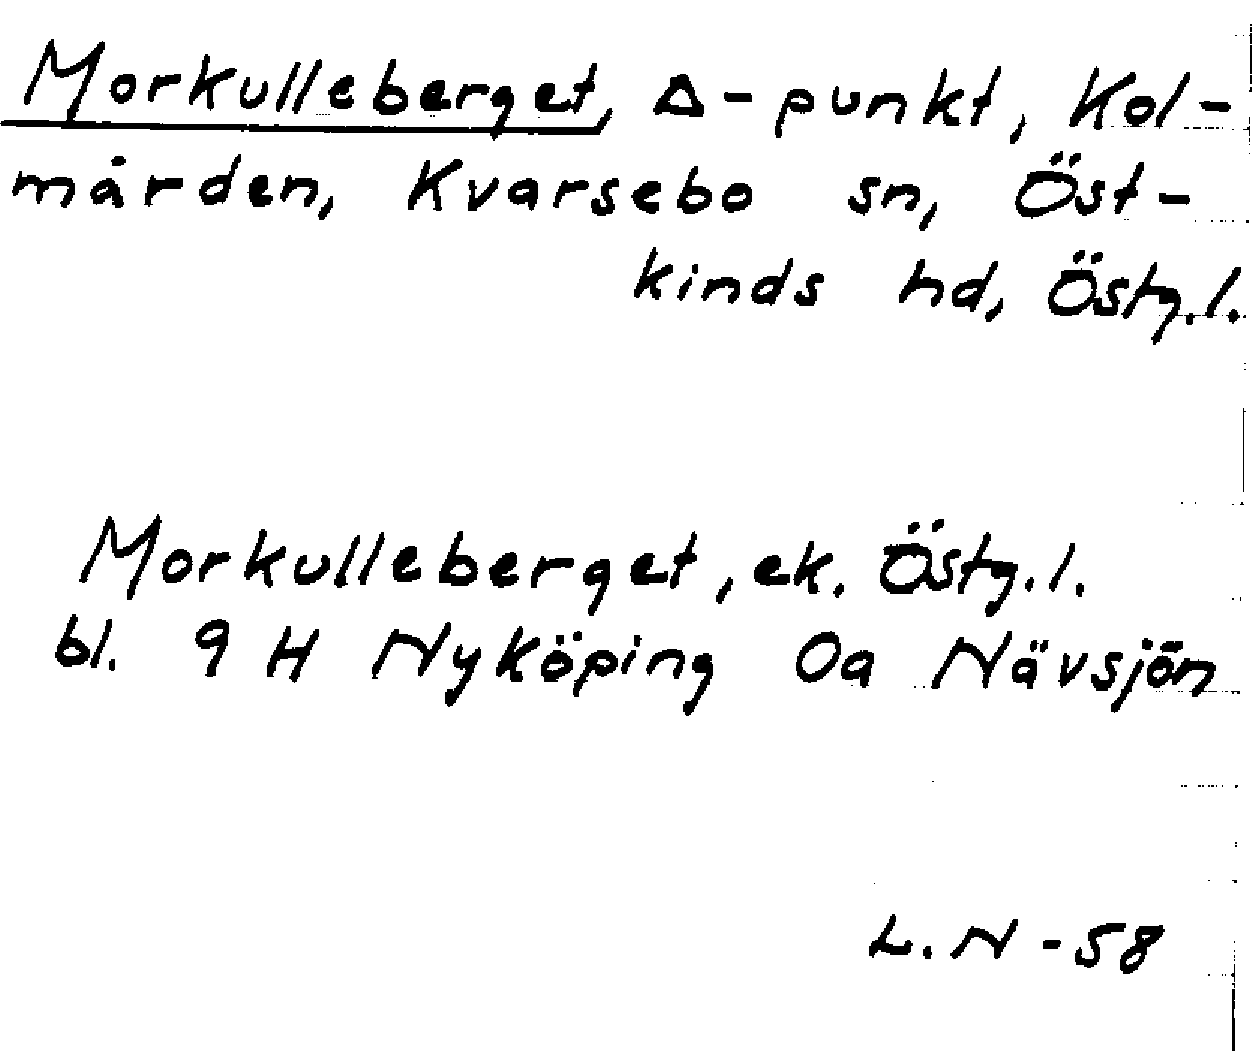 Morkulleberget, Δ-punkt, Kol-
mården, Kvarsebo sn, Öst-
kinds hd, Östg.l.
Morkulleberget, ek. Östg.l.
bl. 9 H Nyköping 0a Nävsjön
L.N -58